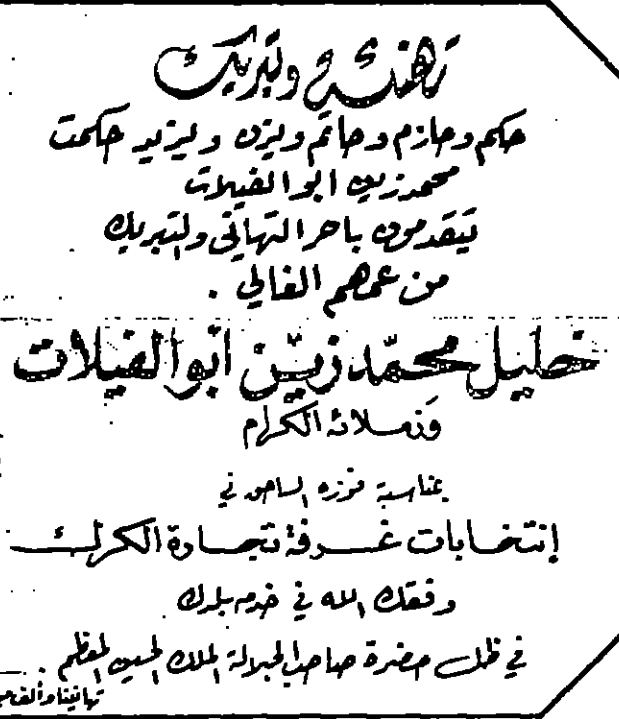 تهنئة وتبريك
حكم وحازم وحاتم ويزن وليزيد حكمت
محمد زين ابو الفيلات
يتقدمون باحر التهاني والتبريك
من عمهم الغالي .
خليل محمد زين أبو الفيلات
وزملائه الكرام
بمناسبة فوزه الساحق في
إنتخابات غرفة تجارة الكرك
وفقك الله في خدمه بلدك
في ظل حضرة صاحب الجلالة الملك الحسين المعظم .
تهانينا وألف